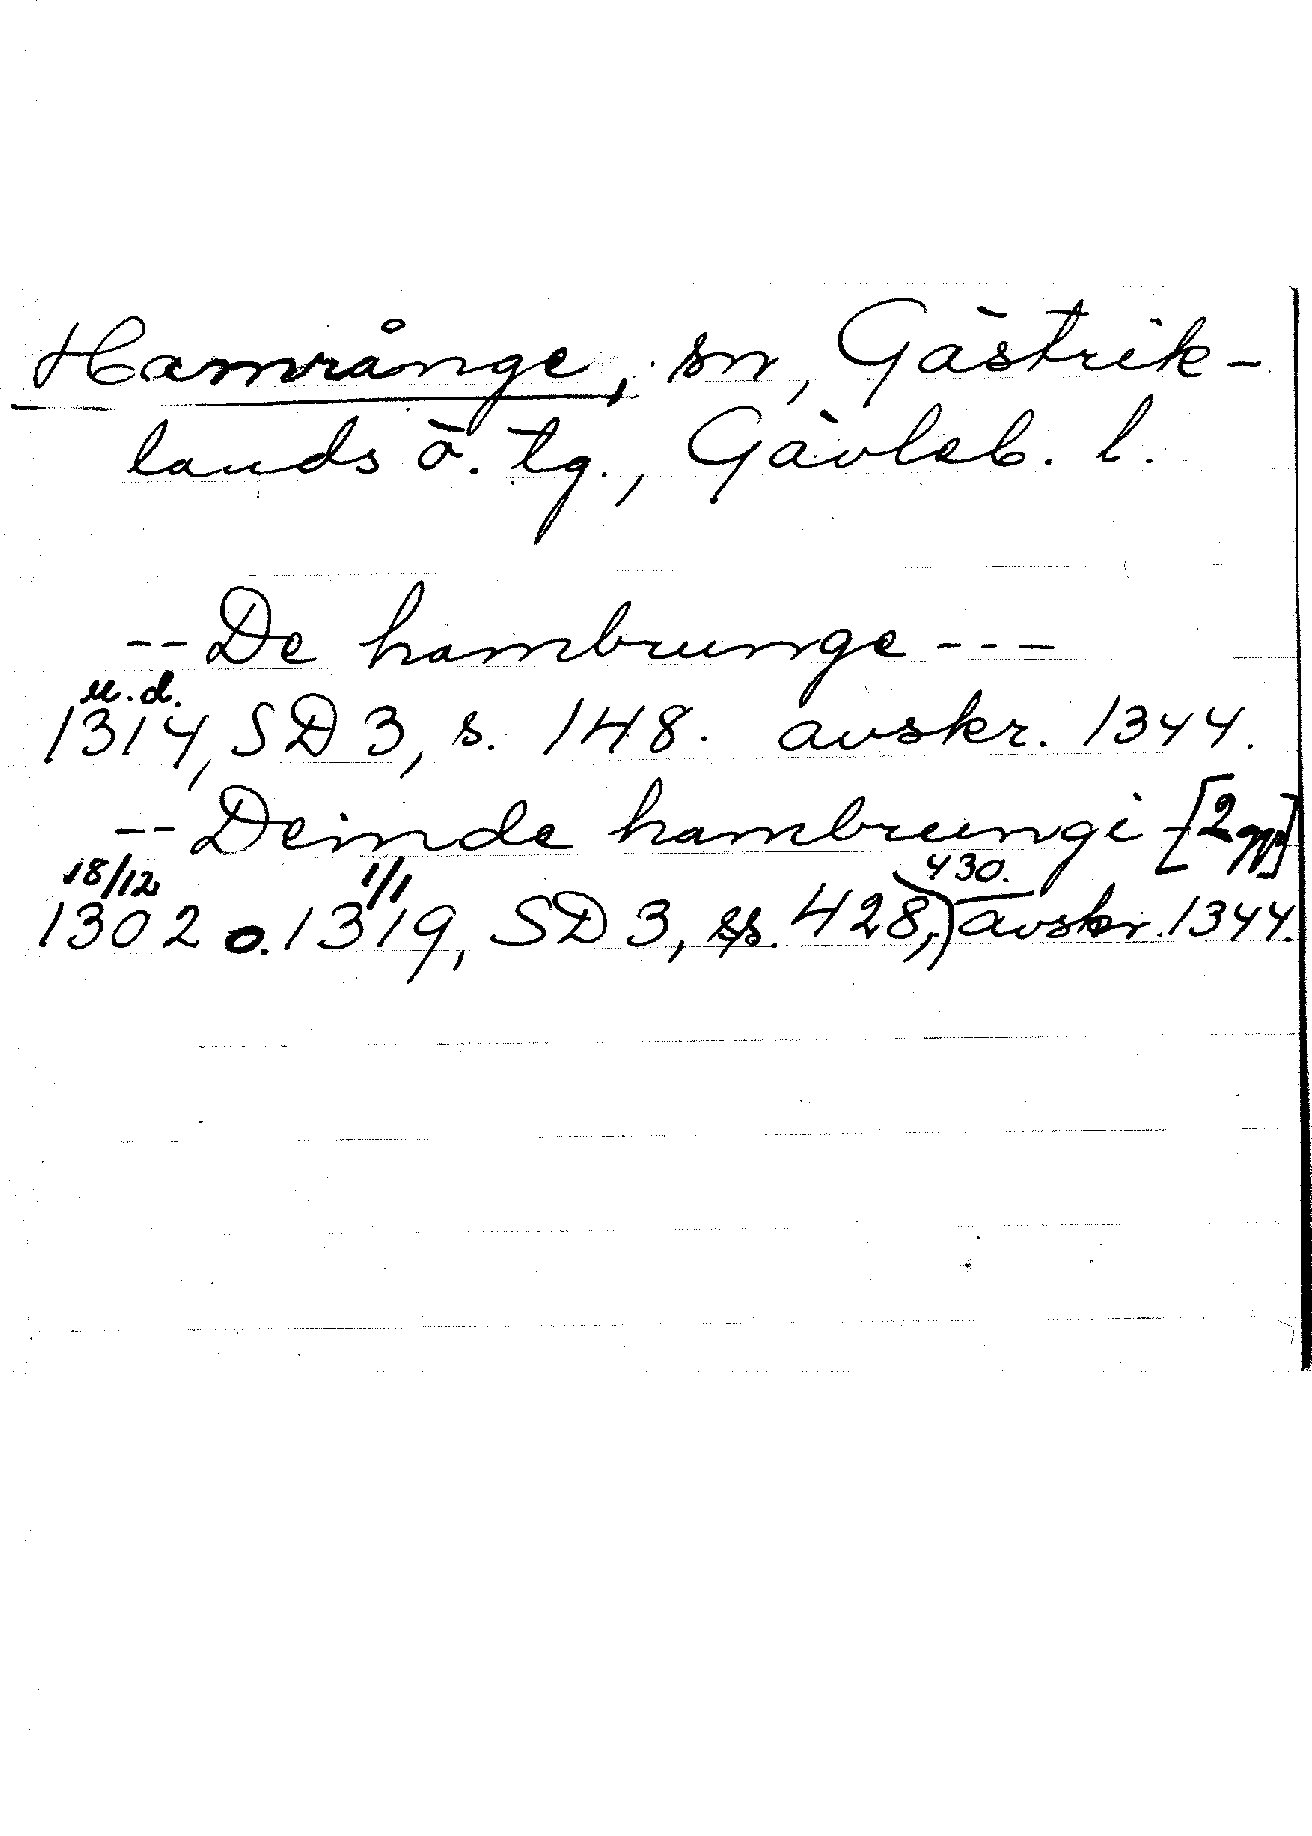 Hamrånge, sn, Gästrik-
lands ö. tg., Gävleb. l.
-- De hambrunge ---
u.d.
1314, SD 3, s. 148. avskr. 1344.
-- Deinde hambrungi - [2 ggr]
18/12 1/1 430.
1302 o. 1319, SD 3, ss. 428, avskr. 1344.